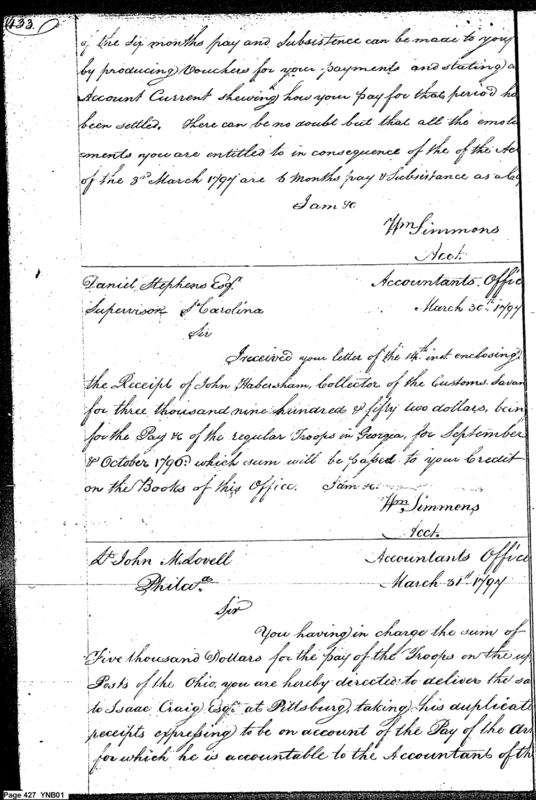 433.
of the six months pay and subsistence can be made to you
by producing Vouchers for your payments and stating a
Account Current shewing how your pay for that period ha
been settled. There can be no doubt but that all the emolu
=ments you are entitled to in consequence of the of the Ac
of the 3rd March 1797 are 6 months pay & Subsistance as a
I am &c
Wm Simmons
Acct.
Daniel Stephens Esqr. Accountants Offic
Supervisor So Carolina March 30th 1797
Sir
I received your letter of the 14th inst enclosing
the Receipt of John Habersham, Collector of the Customs Savan
for three thousand nine hundred & fifty two dollars, bein
for the Pay &c of the regular Troops in Georgia, for September
& October 1796; which sum will be passed to your Credit
on the Books of this Office. I am &c.
Wm Simmons
Acct.
Lt John M. Lovell Accountants Office
Philada March 31st 1797
Sir
You having in charge the sum of
Five thousand Dollars for the pay of the Troops on the up
Posts of the Ohio, you are hereby directed to deliver the sa
to Isaac Craig Esqr at Pittsburg, taking his duplicate
receipts expressing to be on account of the Pay of the Ar
for which he is accountable to the Accountant of th
Page 427 YNB01